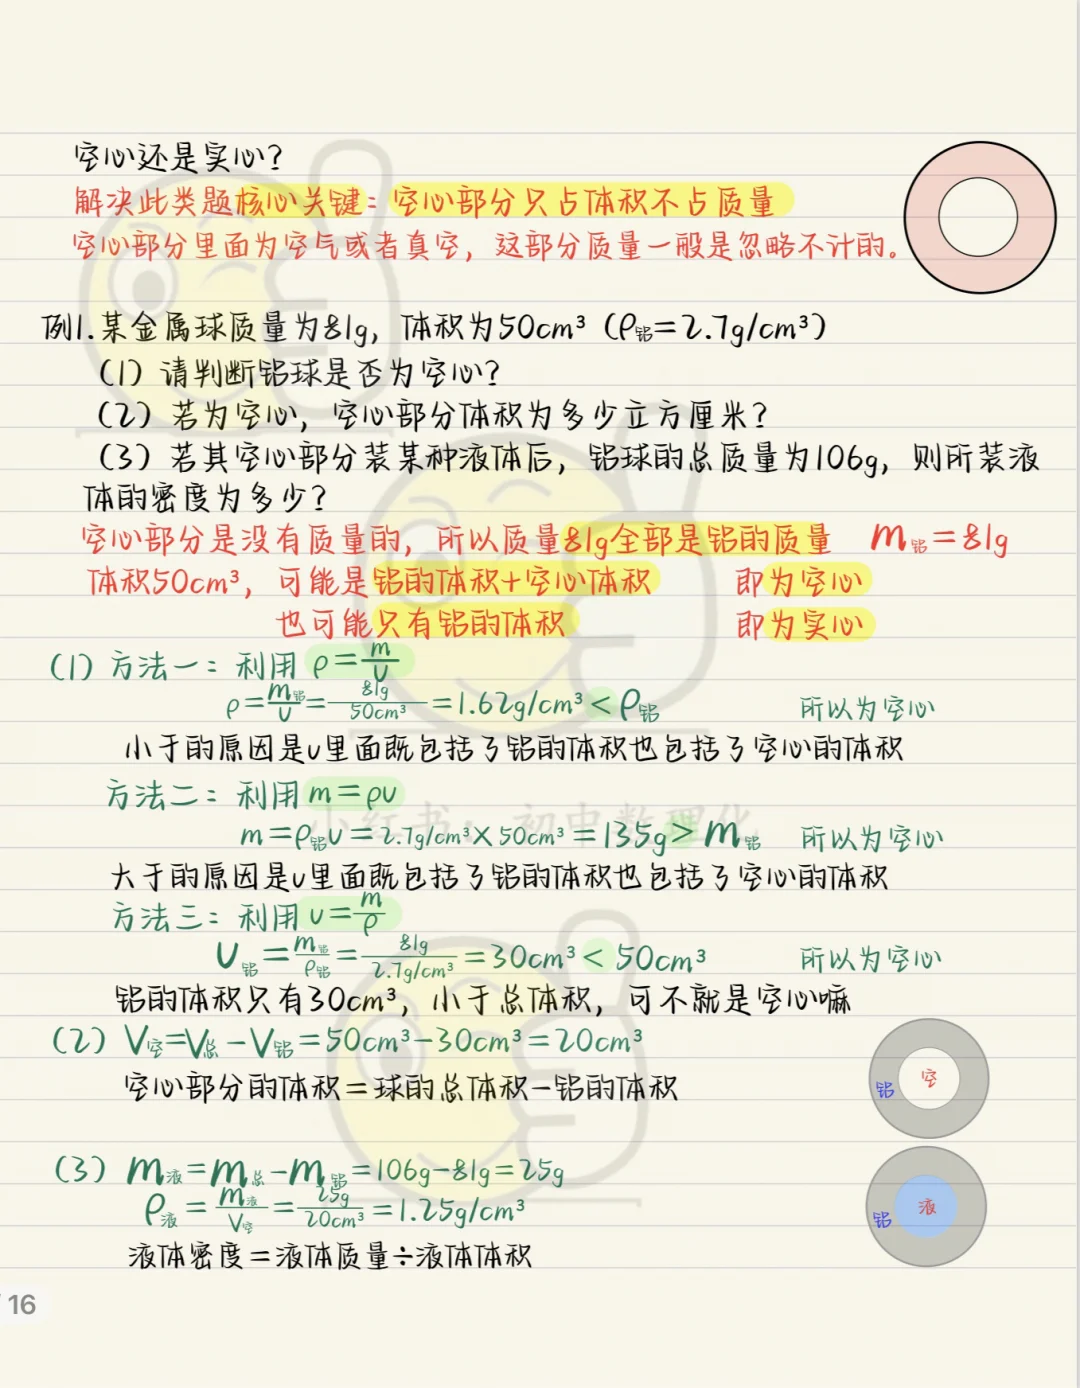 空心还是实心？
解决此类题核心关键：空心部分只占体积不占质量
空心部分里面为空气或者真空，这部分质量一般是忽略不计的。
例1.某金属球质量为81g，体积为50cm³（ρ铝=2.7g/cm³）
（1）请判断铝球是否为空心？
（2）若为空心，空心部分体积为多少立方厘米？
（3）若其空心部分装某种液体后，铝球的总质量为106g，则所装液
体的密度为多少？
空心部分是没有质量的，所以质量81g全部是铝的质量 m铝=81g
体积50cm³，可能是铝的体积+空心体积 即为空心
也可能只有铝的体积 即为实心
（1）方法一：利用ρ=m/v
ρ=m铝/v=81g/50cm³=1.62g/cm³<ρ铝 所以为空心
小于的原因是v里面既包括了铝的体积也包括了空心的体积
方法二：利用m=ρv
小红书：初中数理化
m=ρ铝v=2.7g/cm³×50cm³=135g>m铝 所以为空心
大于的原因是v里面既包括了铝的体积也包括了空心的体积
方法三：利用v=m/ρ
v铝=m铝/ρ铝=81g/2.7g/cm³=30cm³<50cm³ 所以为空心
铝的体积只有30cm³，小于总体积，可不就是空心嘛
（2）V空=V总-V铝=50cm³-30cm³=20cm³
空心部分的体积=球的总体积-铝的体积
铝 空
（3）m液=m总-m铝=106g-81g=25g
ρ液=m液/V空=25g/20cm³=1.25g/cm³
铝 液
液体密度=液体质量÷液体体积
16